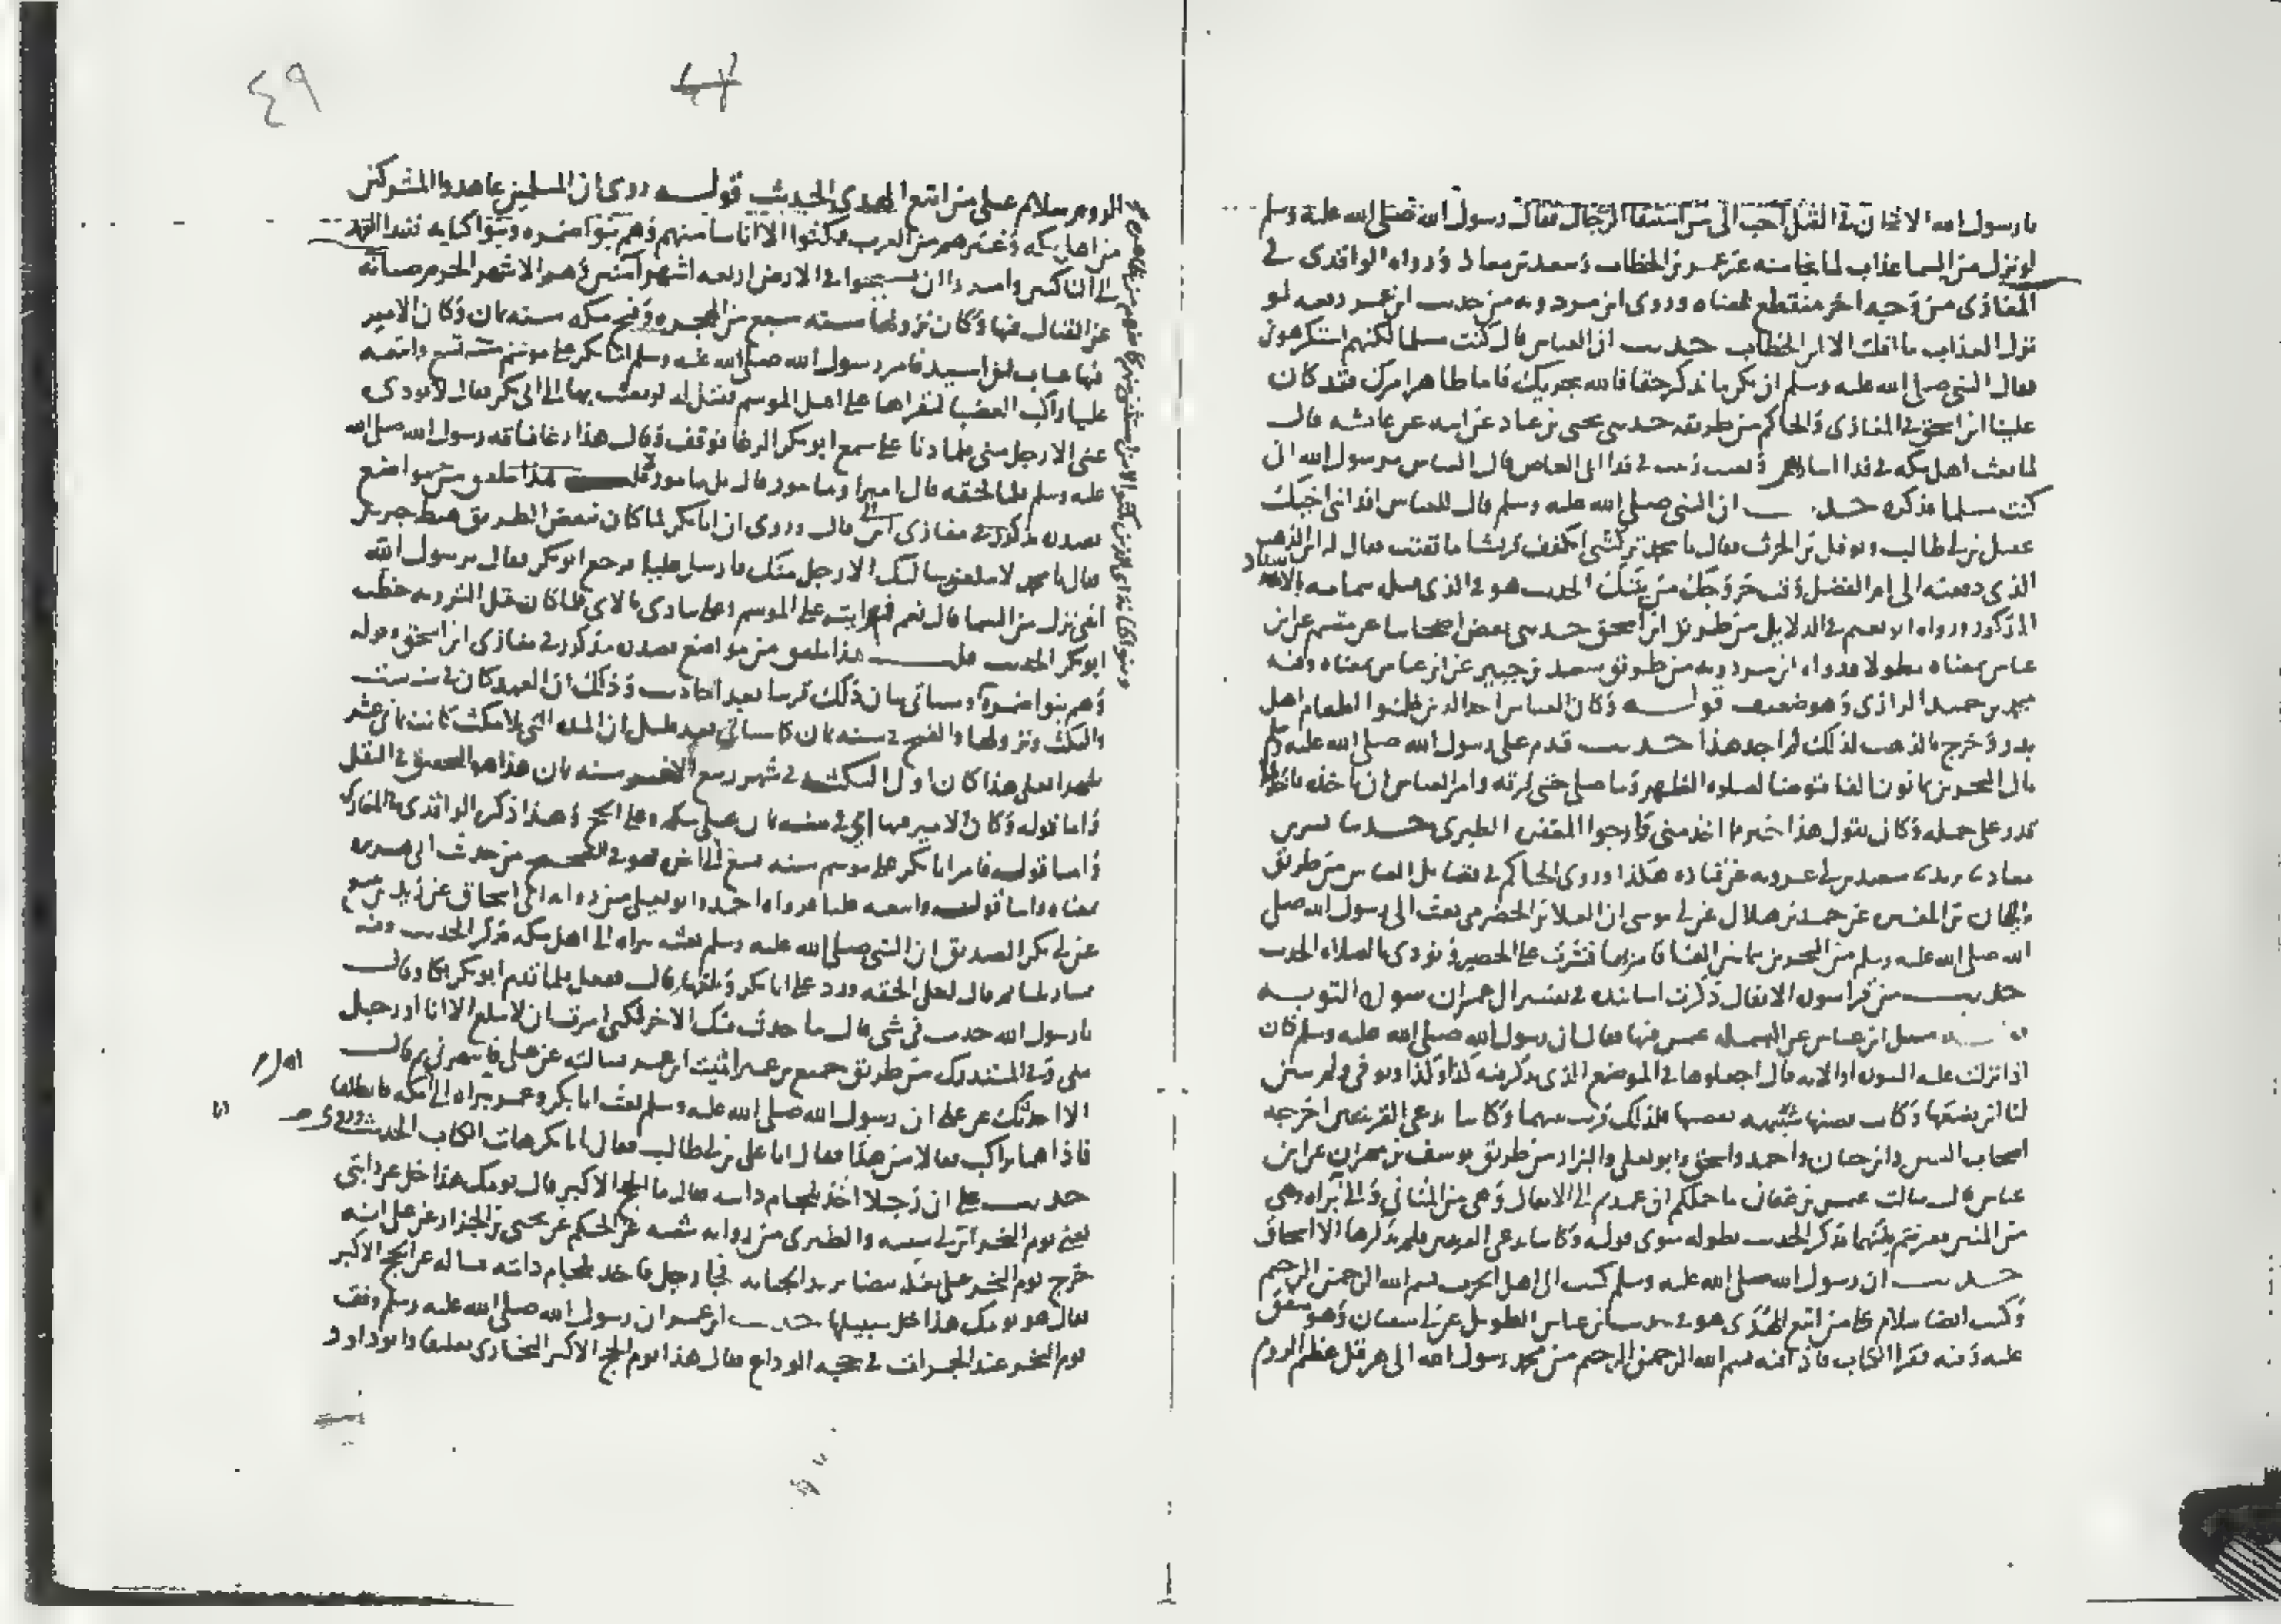 يا رسول الله الاثخان في القتل احب الي من استبقا الرجال فقال رسول الله صلى الله عليه وسلم
لو نزل من السما عذاب لما نجا منه غير عمر بن الخطاب وسعد بن معاذ ورواه الواقدي في
المغازي من وجه اخر منقطع بمعناه وروى ابن مردويه من حديث ابن عمر رفعه لو
نزل العذاب ما افلت الا ابن الخطاب حديث ان العباس قال كنت مسلما لكنهم استكرهوني
فقال النبي صلى الله عليه وسلم ان يكن ما تذكر حقا فالله يجزيك فاما ظاهر امرك فقد كان
علينا ابن اسحق في المغازي والحاكم من طريقه حدثني يحيى بن عباد عن ابيه عن عائشه قال
لما بعث اهل مكه في فدا اساراهم وبعثت زينب في فدا ابي العاص قال العباس يا رسول الله اني
كنت مسلما فذكره حديث ان النبي صلى الله عليه وسلم قال للعباس افد ابني اخيك
عقيل بن ابي طالب ونوفل بن الحرث فقال يا محمد تركتني اتكفف قريشا ما بقيت فقال له اين الذهب
الذي دفعته الى ام الفضل وقت خروجك من بيتك الحديث هو في الذي قبله بتمامه بالاسناد
المذكور ورواه ابو نعيم في الدلايل من طريق ابن اسحق حدثني بعض اصحابنا عن مقسم عن ابن
عباس بمعناه مطولا ورواه ابن مردويه من طريق سعيد بن جبير عن ابن عباس بمعناه وفيه
محمد بن حميد الرازي وهو ضعيف قوله وكان العباس احد الذين ضمنوا اطعام اهل
بدر وخرج بالذهب لذلك لم اجد هذا حديث قدم على رسول الله صلى الله عليه وسلم
مال البحرين ثمانون الفا فتوضا لصلاه الظهر وما صلى حتى فرقه وامر العباس ان ياخذ فاخذ
ما قدر على حمله وكان يقول هذا خير مما اخذ مني وارجوا المغفره الطبري حدثنا بشر بن
معاذ ثنا يزيد ثنا سعيد بن ابي عروبه عن قتاده هكذا وروى الحاكم في فضايل العباس من طريق
سليمان بن المغيره عن حميد بن هلال عن ابي موسى ان العلا بن الحضرمي بعث الى رسول الله صلى
الله صلى الله عليه وسلم من البحرين ثمانين الفا فامر بها فنثرت على الحصير ونودي بالصلاه الحديث
حديث من قرا سوره الانفال ذكرت اسانيده في تفسير ال عمران سوره التوبه
سيل ابن عباس عن البسمله عثمن فيها فقال ان رسول الله صلى الله عليه وسلم كان
اذا نزلت عليه السوره او الايه قال اجعلوها في الموضع الذي يذكر فيه كذا وكذا وتوفي ولم يبين
لنا اين نضعها وكانت قصتها شبيهه بقصتها فلذلك قرنت بينهما وكانتا تدعى القرينتين اخرجه
اصحاب السنن وابن حبان واحمد واسحق وابو يعلى والبزار من طريق يوسف بن مهران عن ابن
عباس قال سالت عثمن بن عفان ما حملكم ان عمدتم الى الانفال وهي من المثاني والى براه وهي
من المئين فقرنتم بينهما فذكر الحديث بطوله سوى قوله وكانتا تدعى القرينتين فلم يذكرها الا اسحاق
حديث ان رسول الله صلى الله عليه وسلم كتب الى اهل الحرب بسم الله الرحمن الرحيم
وكتب ايضا سلام على من اتبع الهدى هو في حديث ابن عباس الطويل عن ابي سفيان وهو متفق
عليه وفيه فقرا الكتاب فاذا فيه بسم الله الرحمن الرحيم من محمد رسول الله الى هرقل عظيم الروم
٤٩
الروم سلام على من اتبع الهدى الحديث قوله روى ان المسلمين عاهدوا المشركين
من اهل مكه وغيرهم من العرب فنكثوا الا اناسا منهم وهم بنوا ضمره وبنوا كنانه فنبذ العهد
الى الناكثين وامروا ان يسيحوا في الارض اربعه اشهر آمنين وهو الاشهر الحرم صيانه
عن القتال فيها وكان نزولها سنه سبع من الهجره وفتح مكه سنه ثمان وكان الامير
فيها عتاب بن اسيد فامر رسول الله صلى الله عليه وسلم ابا بكر على موسم سنه تسع واتبعه
عليا راكب العضبا ليقراها على اهل الموسم فقيل له لو بعثت بها الى ابي بكر فقال لا يودي
عني الا رجل مني فلما دنا علي سمع ابو بكر الرغا فوقف وقال هذا رغا ناقه رسول الله صلى الله
عليه وسلم فلما لحقه قال اميرا او مامور قال بل مامور قلت هذا ملفق من مواضع
بعضه مذكور في مغازي قال وروى ان ابا بكر لما كان ببعض الطريق هبط جبريل
فقال يا محمد لا يبلغن رسالتك الا رجل منك فارسل عليا فرجع ابو بكر فقال يا رسول الله
اشي نزل من السما قال نعم فسر انت على الموسم وعلي ينادي بالاي فلما كان قبل الترويه خطب
ابو بكر الحديث قلت هذا ملفق من مواضع بعضه مذكور في مغازي ابن اسحق وقوله
وهم بنوا ضمره وسياتي بيان ذلك قريبا بعد احاديث وذلك ان العهد كان في سنه ست
والنكث ونزولها والفتح في سنه ثمان كما سياتي بعد قليل
فعلى هذا كان اول النكث في شهر ربيع سنه ثمان هذا هو المحقق في النقل
واما قوله وكان الامير فيها اي في سنه ثمان على مكه وعلى الحج وهذا ذكره الواقدي في المغازي
واما قوله فامر ابا بكر على موسم سنه تسع الى اخره فهو في الصحيح من حديث ابي هريره
بمعناه واما قوله واتبعه عليا فرواه احمد وابو يعلى من روايه ابي اسحاق عن زيد بن يثيع
عن ابي بكر الصديق ان النبي صلى الله عليه وسلم بعثه ببراه الى اهل مكه فذكر الحديث وفيه
فسار ثلثا ثم قال لعلي الحقه ورد علي ابا بكر وبلغها قال ففعل فلما قدم ابو بكر بكا وقال
يا رسول الله حدث في شي قال ما حدث فيك الا خير لكني امرت ان لا يبلغ الا انا او رجل
مني وفي المستدرك من طريق جميع بن عمير اتيت ابن عمر فسالته عن علي فانتهرني ثم قال
الا احدثك عن علي ان رسول الله صلى الله عليه وسلم بعث ابا بكر وعمر ببراه الى اهل مكه فانطلقا
فاذا هما براكب فقالا من هذا فقال انا علي بن ابي طالب فقال يا ابا بكر هات الكتاب الحديث وروى
حديث علي ان رجلا اخذ بلجام دابته فقال ما الحج الاكبر قال يومك هذا خل عن دابتي
يعني يوم النحر ابن ابي شيبه والطبري من روايه شعبه عن الحكم عن يحيى بن الجزار عن علي انه
خرج يوم النحر على بغله بيضا يريد الجبانه فجا رجل فاخذ بلجام دابته فساله عن الحج الاكبر
فقال هو يومك هذا خل سبيلها حديث ابن عمر ان رسول الله صلى الله عليه وسلم وقف
يوم النحر عند الجمرات في حجه الوداع فقال هذا يوم الحج الاكبر البخاري تعليقا وابو داود